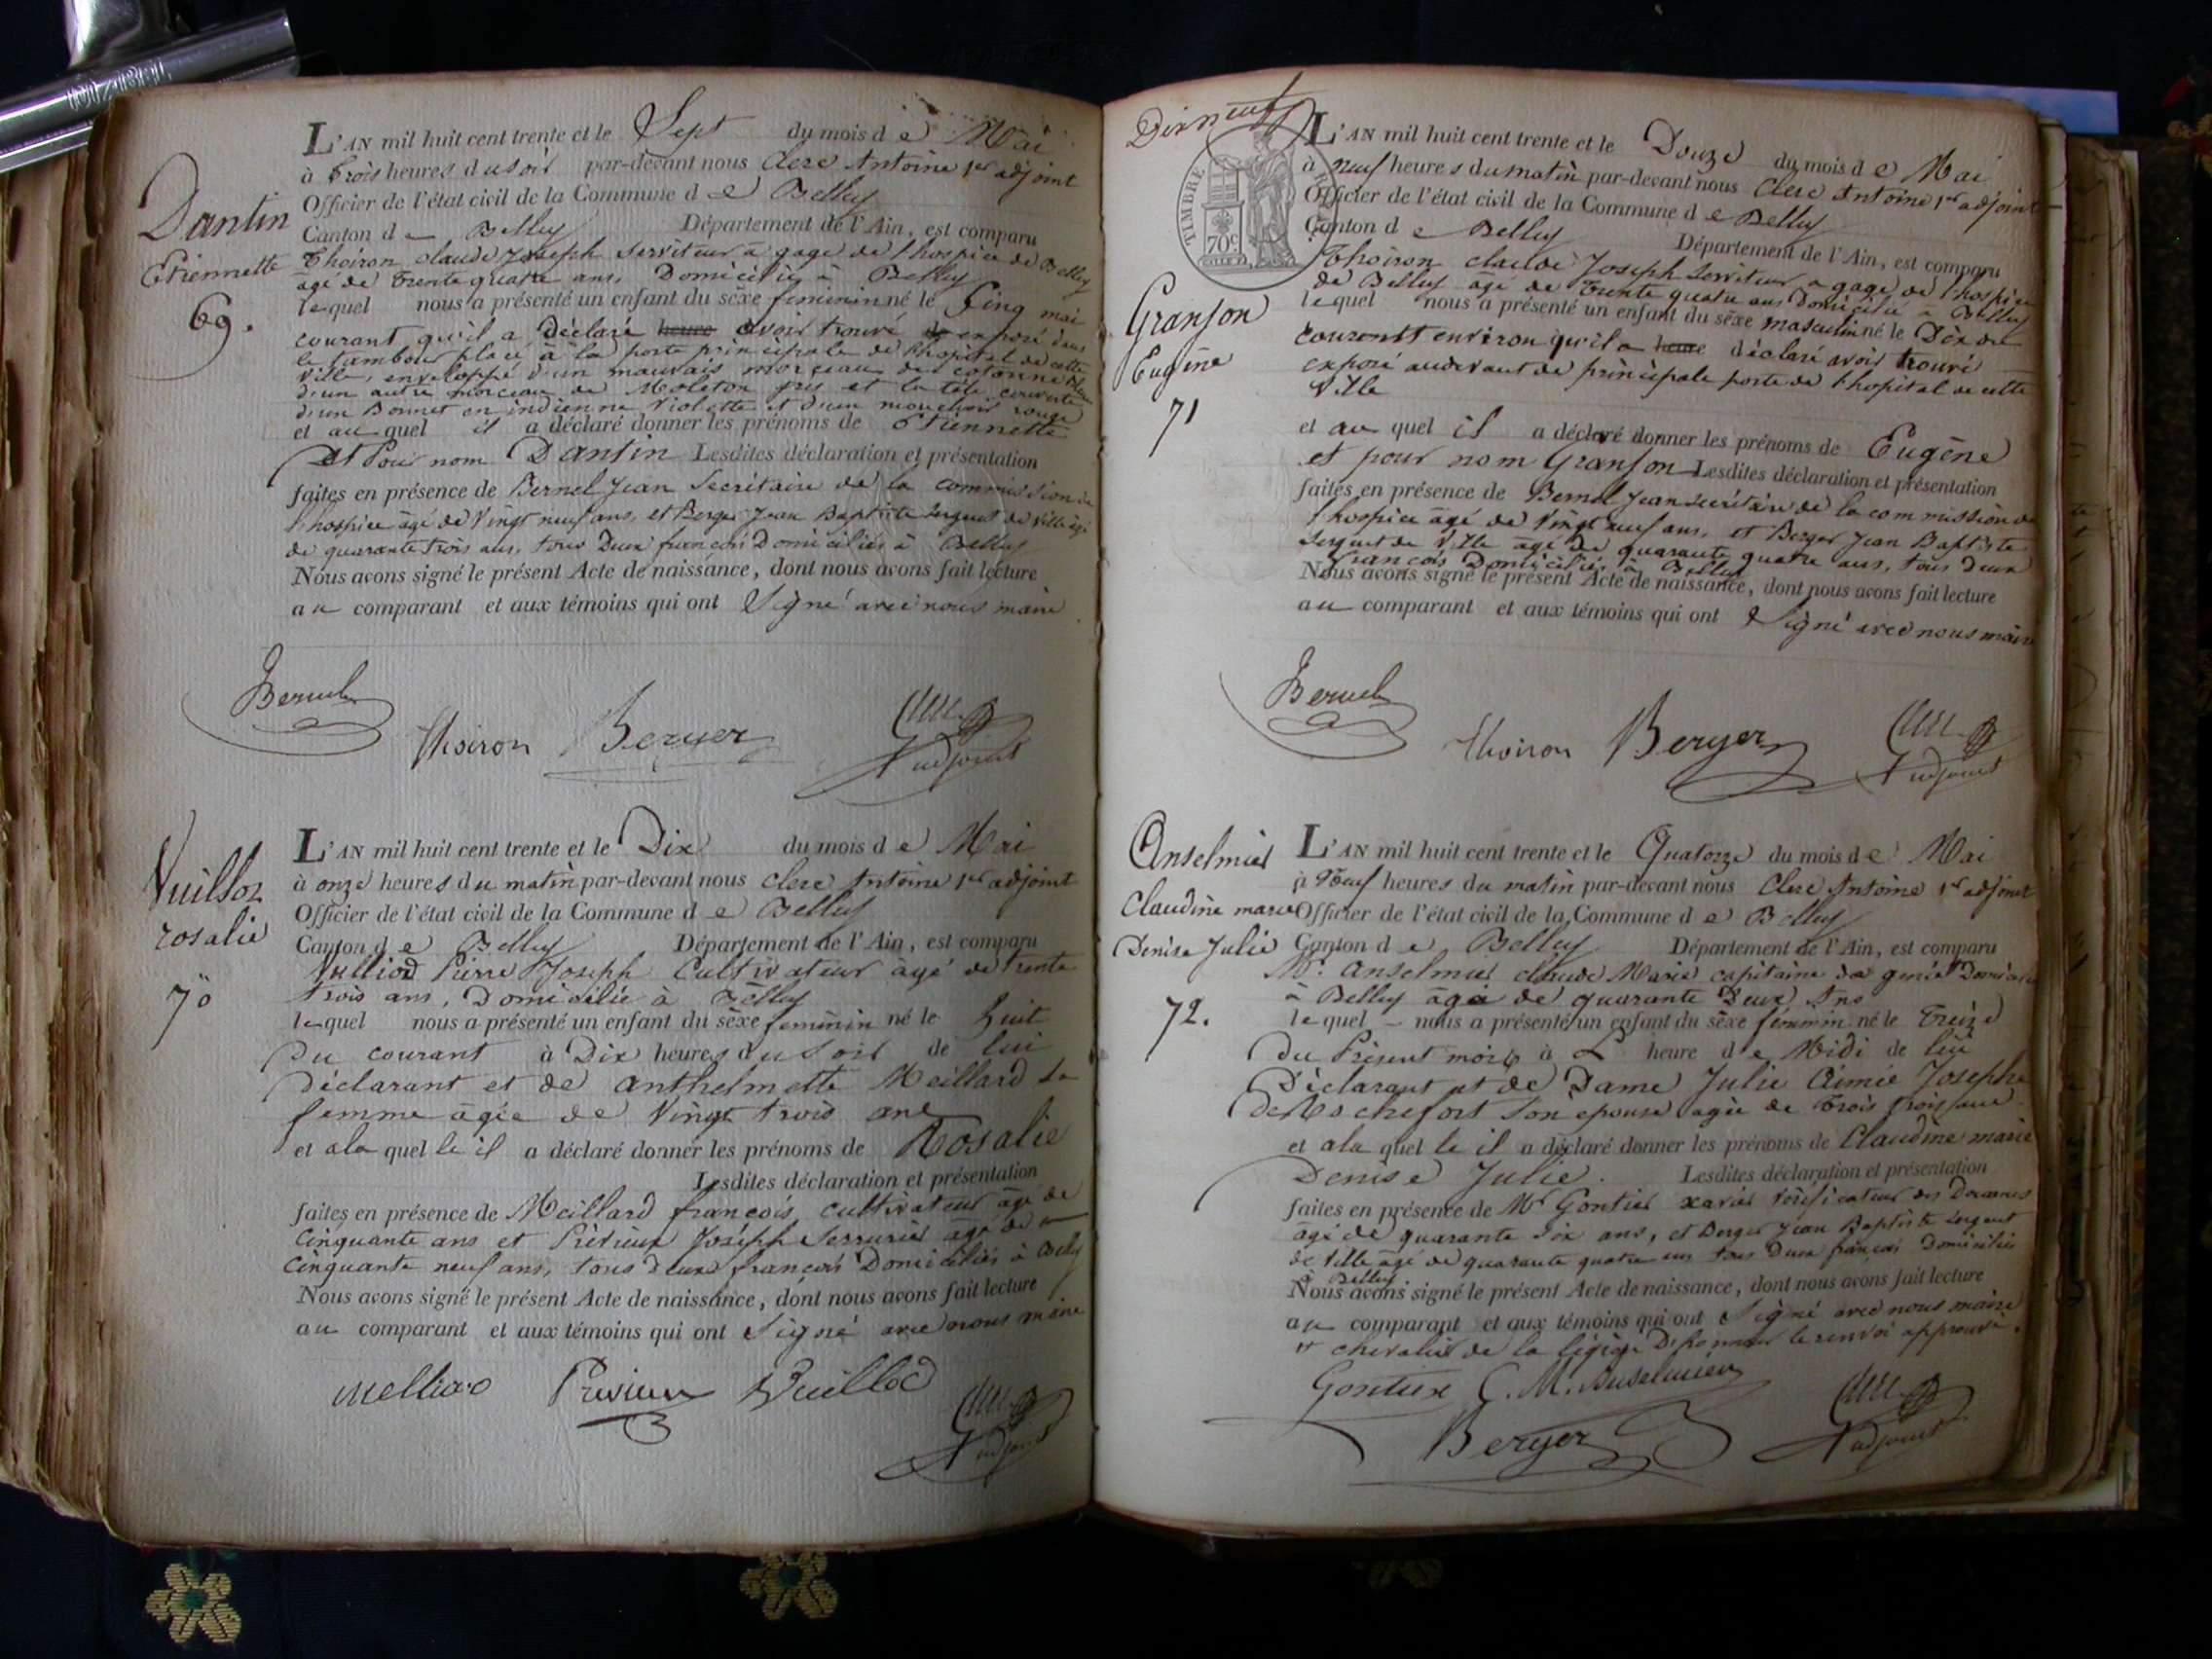 Dantin
Etiennette
69.
L'AN mil huit cent trente et le Sept du mois de Mai
à trois heures du soir par-devant nous Clerc Antoine 1er adjoint
Officier de l'état civil de la Commune de Belley
Canton de Belley Département de l'Ain, est comparu
Thoiron Claude Joseph Serviteur à gage de l'hospice de Belley
âgé de trente quatre ans, Domicilié à Belley
lequel nous a présenté un enfant du sèxe feminin né le Cinq mai
courant qu'il a Déclaré heure avoir trouvé exposé dans
le tambour placé à la porte principale de l'hopital de cette
Ville, enveloppé d'un mauvais morceau de cotonne bleu
d'un autre morceau de Moleton gris et la tête couverte
d'un Bonnet en indienne Violette et d'un mouchoir rouge
et au quel il a déclaré donner les prénoms de Etiennette
Et Pour nom Dantin Lesdites déclaration et présentation
faites en présence de Bernel Jean Secrétaire de la commission de
l'hospice âgé de Vingt neuf ans, et Berger Jean Baptiste sergent de ville âgé
de quarante trois ans, tous Deux français Domiciliés à Belley
Nous avons signé le présent Acte de naissance, dont nous avons fait lecture
au comparant et aux témoins qui ont Signé avec nous maire
Bernel
Thoiron Berger Clerc
adjoint
Vuilloz
rosalie
70
L'AN mil huit cent trente et le Dix du mois de Mai
à onze heures du matin par-devant nous Clerc Antoine 1er adjoint
Officier de l'état civil de la Commune de Belley
Canton de Belley Département de l'Ain, est comparu
Pierre Joseph Cultivateur âgé de trente
trois ans, Domicilié à Belley
lequel nous a présenté un enfant du sèxe feminin né le huit
Du courant à Dix heures du soir de lui
Déclarant et de Anthelmette Meillard sa
femme âgée de Vingt trois ans
et a la quel le il a déclaré donner les prénoms de Rosalie
Lesdites déclaration et présentation
faites en présence de Meillard françois cultivateur âgé de
Cinquante ans et Prévieux Joséph Serrurier âgé de
Cinquante neuf ans, tous deux français Domiciliés à Belley
Nous avons signé le présent Acte de naissance, dont nous avons fait lecture
au comparant et aux témoins qui ont Signé avec nous maire
Prévieux Vuillod Clerc
adjoint
Dixneuf
TIMBRE
70c
Granson
Eugène
71
L'AN mil huit cent trente et le Douze du mois de Mai
à neuf heures du matin par-devant nous Clerc Antoine 1er adjoint
Officier de l'état civil de la Commune de Belley
Canton de Belley Département de l'Ain, est comparu
Thoiron Claude Joseph Serviteur à gage de l'hospice
de Belley âgé de trente quatre ans Domicilié à Belley
lequel nous a présenté un enfant du sèxe masculin né le Dix du
courant environ qu'il a heure déclaré avoir trouvé
exposé audevant de principale porte de l'hopital de cette
Ville
et au quel il a déclaré donner les prénoms de Eugène
et pour nom Granson Lesdites déclaration et présentation
faites en présence de Bernel Jean secrétaire de la commission de
l'hospice âgé de Vingt neuf ans, et Berger Jean Baptiste
Sergent de Ville âgé de quarante quatre ans, tous deux
français Domiciliés à Belley
Nous avons signé le présent Acte de naissance, dont nous avons fait lecture
au comparant et aux témoins qui ont Signé avec nous maire
Bernel
Thoiron Berger Clerc
adjoint
Anselmier
Claudine marie
Denise Julie
72.
L'AN mil huit cent trente et le Quatorze du mois de Mai
à Neuf heures du matin par-devant nous Clerc Antoine 1er adjoint
Officier de l'état civil de la Commune de Belley
Canton de Belley Département de l'Ain, est comparu
Mr. Anselmier Claude Marie capitaine du genie Domicilié
à Belley âgé de quarante Deux Ans
lequel nous a présenté un enfant du sèxe féminin né le Treize
Du Présent mois à L heure de Midi de lui
Déclarant et de Dame Julie Aimée Josephe
de Rochefort Son epouse agée de trois trois ans
et a la quel le il a déclaré donner les prénoms de Claudine marie
Denise Julie. Lesdites déclaration et présentation
faites en présence de Mr Gontier xavier Vérificateur des Douanes
âgé de quarante Six ans, et Berger Jean Baptiste sergent
de Ville âgé de quarante quatre ans tous Deux français Domiciliés
à Belley
Nous avons signé le présent Acte de naissance, dont nous avons fait lecture
au comparant et aux témoins qui ont Signé avec nous maire
et chevalier de la légion D'honneur le renvoi approuvé.
Gontier C. M. Anselmier Clerc
Berger adjoint